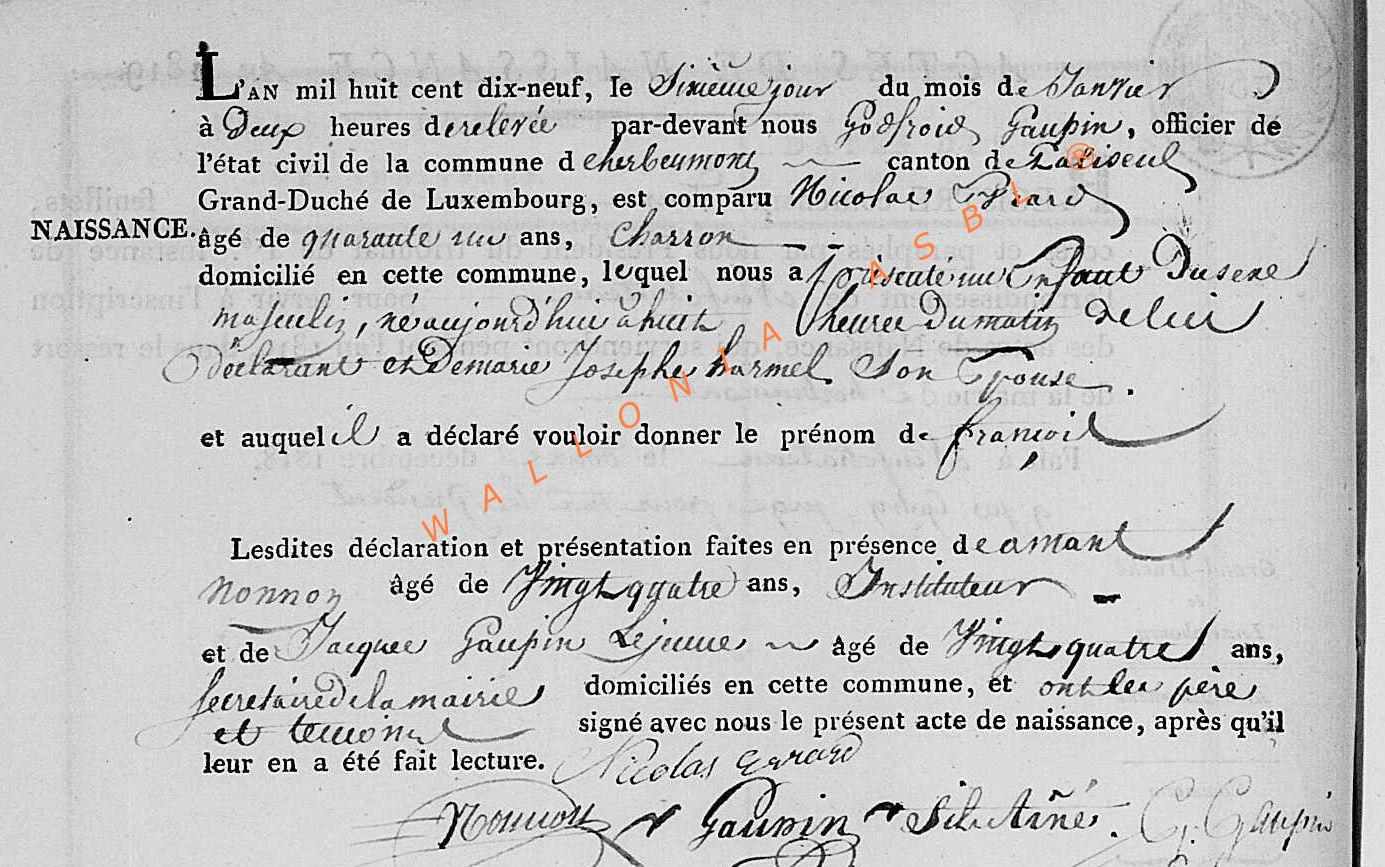 L'AN mil huit cent dix-neuf, le Sixieme jour du mois de Janvier
à Deux heures de relevée par-devant nous Godfroid Gaupin, officier de
l'état civil de la commune d'herbeumont canton de Paliseul
Grand-Duché de Luxembourg, est comparu Nicolas Erard
NAISSANCE.
âgé de quarante un ans, Charron
domicilié en cette commune, lequel nous a présenté un Enfant Du sexe
masculin, né aujourd'hui à huit heures Du matin De lui
déclarant et De marie Josephe harmel Son Epouse.
et auquel il a déclaré vouloir donner le prénom de françois
Lesdites déclaration et présentation faites en présence de amant
Nonnon âgé de Vingt quatre ans, Instituteur
et de Jacques Gaupin Lejeune âgé de Vingt quatre ans,
Secretaire De la mairie domiciliés en cette commune, et ont les père
et temoins signé avec nous le présent acte de naissance, après qu'il
leur en a été fait lecture. Nicolas Erard
Nonnon Gaupin G. Gaupin
WALLONIA ASBL ®